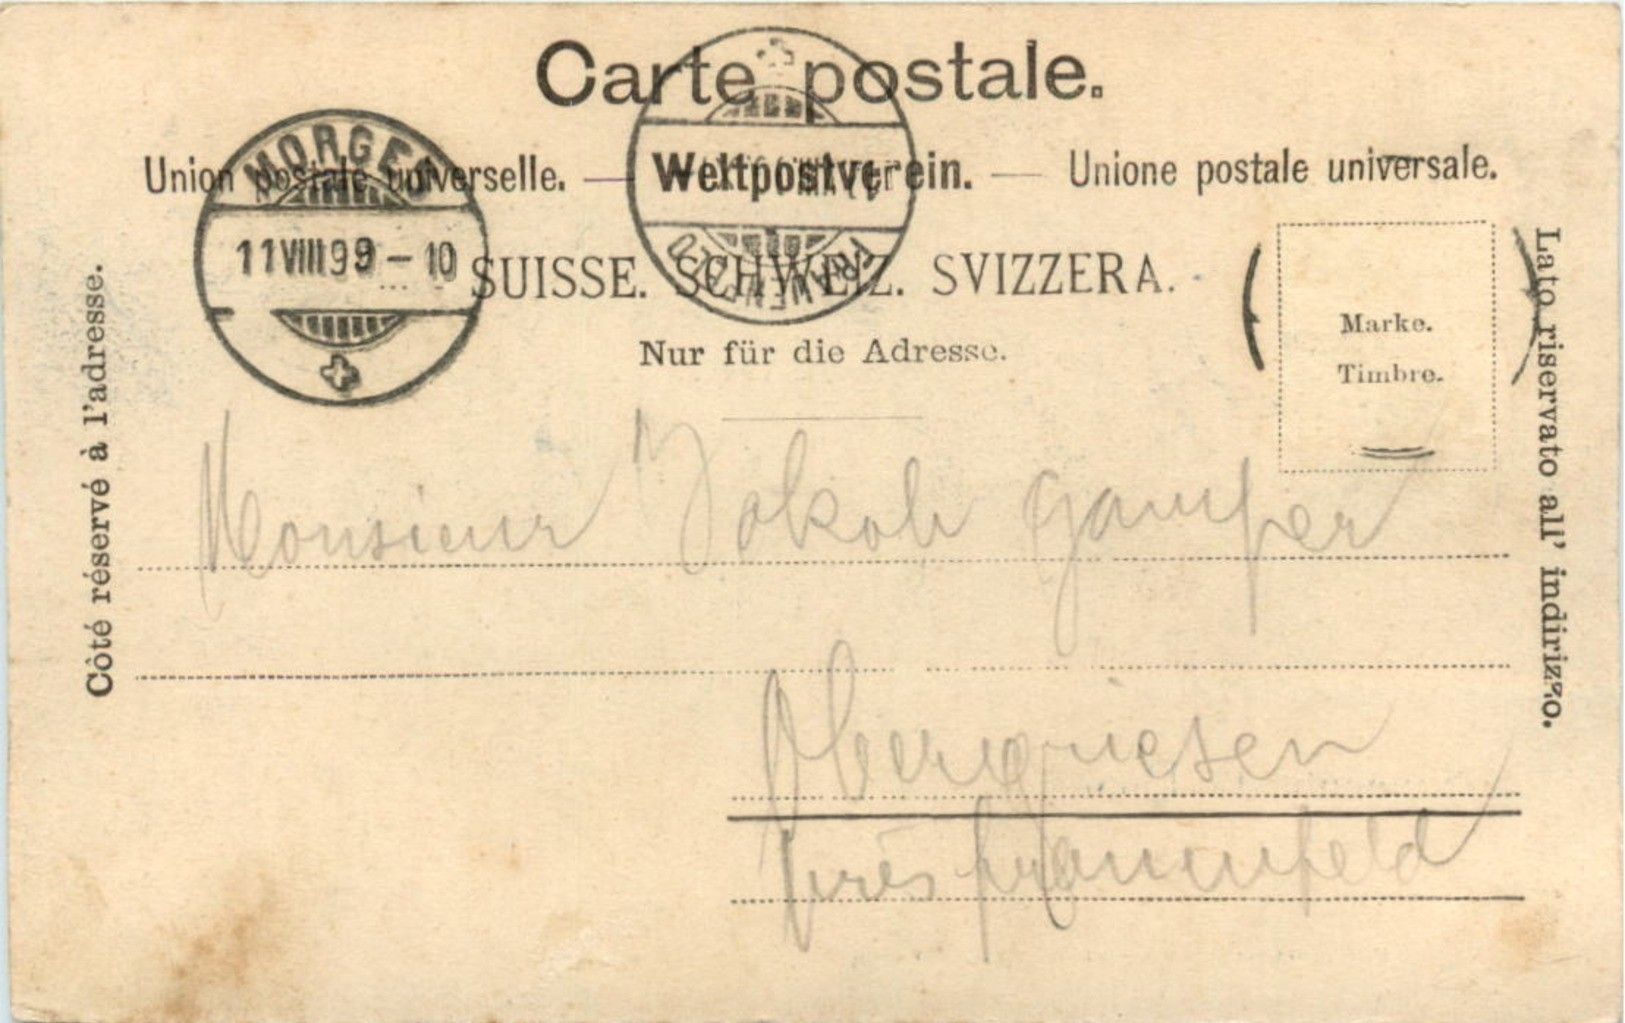 Carte postale.
Union postale universelle. — Weltpostverein. — Unione postale universale.
MORGES
11 VIII 99 – 10
FRAUENFELD
SUISSE. SCHWEIZ. SVIZZERA.
Nur für die Adresse.
Marke.
Timbre.
Côté réservé à l'adresse.
Lato riservato all' indirizzo.
Monsieur Jakob Gamper
Obergriesen
près Frauenfeld